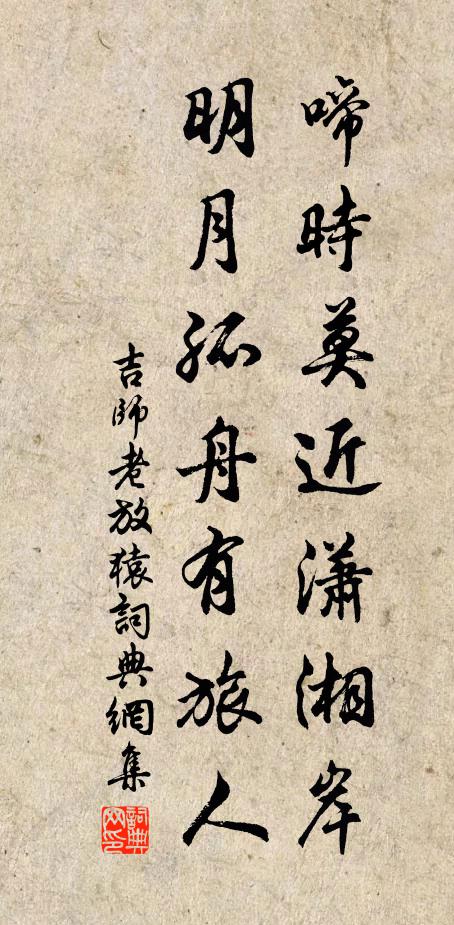 啼時莫近瀟湘岸
明月孤舟有旅人
吉師老放猿詞典網集
詞典网印